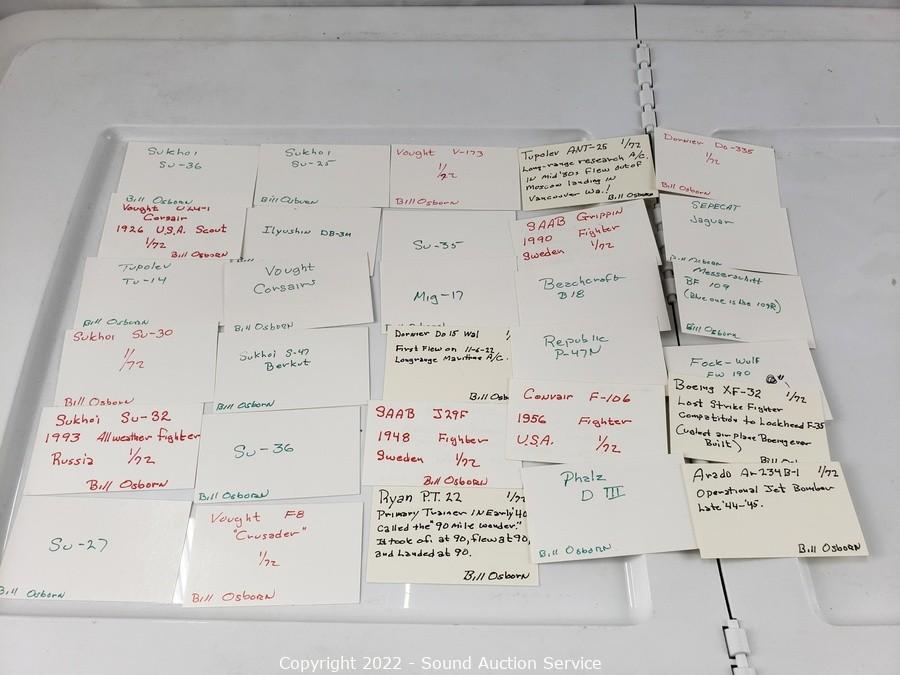 Sukhoi
Su-36
Bill Osborn
Sukhoi
Su-25
Bill Osborn
Vought V-173
1/72
Bill Osborn
Tupolev ANT-25 1/72
Long-range research A/C.
IN Mid '30s Flew out of
Moscow landing in
Vancouver Wa.!
Bill Osborn
Dornier Do-335
1/72
Bill Osborn
Vought
Corsair
1926 U.S.A. Scout
1/72
Bill Osborn
Ilyushin DB-3M
Su-35
SAAB Grippin
1990 Fighter
Sweden 1/72
SEPECAT
Jaguar
Bill Osborn
Tupolev
Tu-14
Bill Osborn
Vought
Corsairs
Bill Osborn
Mig-17
Beachcraft
B18
Messerschitt
BF 109
(Blue one is the 109R)
Bill Osborn
Sukhoi Su-30
1/72
Bill Osborn
Sukhoi S-47
Berkut
Bill Osborn
Dornier Do 15 Wal
First Flew on 11-6-22
Longrange Maritime A/C.
Bill Osb
Republic
P-47N
Fock-Wulf
FW 190
Sukhoi Su-32
1993 All weather fighter
Russia 1/72
Bill Osborn
Su-36
Bill Osborn
SAAB J29F
1948 Fighter
Sweden 1/72
Bill Osborn
Convair F-106
1956 Fighter
U.S.A. 1/72
Boeing XF-32 1/72
Lost Strike Fighter
Compatition to Lockheed F-35
(Uglest air plane Boeing ever
Built)
Su-27
Bill Osborn
Vought F-8
"Crusader"
1/72
Bill Osborn
Ryan P.T. 22 1/72
Primary Trainer IN Early '40
Called the "90 mile wonder."
It took of at 90, flew at 90,
and Landed at 90.
Bill Osborn
Phalz
D III
Bill Osborn
Arado Ar 234 B-1 1/72
Operational Jet Bomber
Late '44-'45.
Bill Osborn
Copyright 2022 - Sound Auction Service